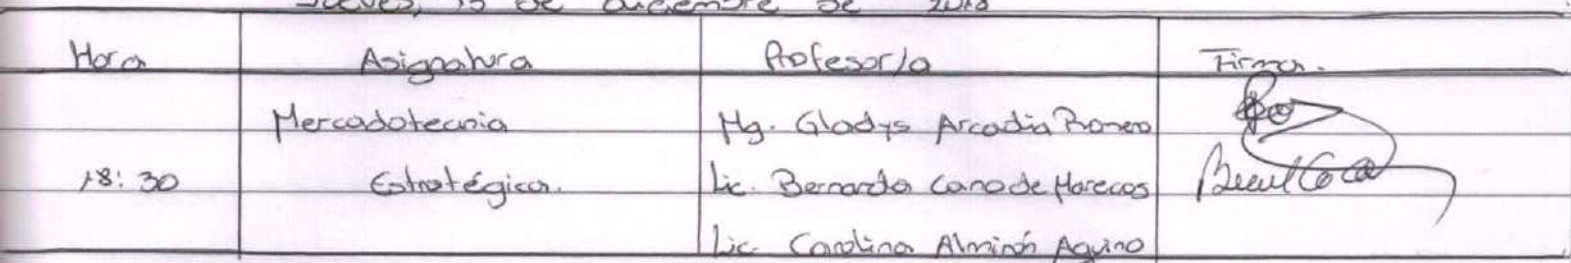 Jueves, 13 de diciembre de 2018
Hora Asignatura Profesor/a Firma.
Mercadotecnia Mg. Gladys Arcadia Romero
18:30 Estratégica. Lic. Bernarda Cano de Marecos
Lic. Carolina Almirón Aquino